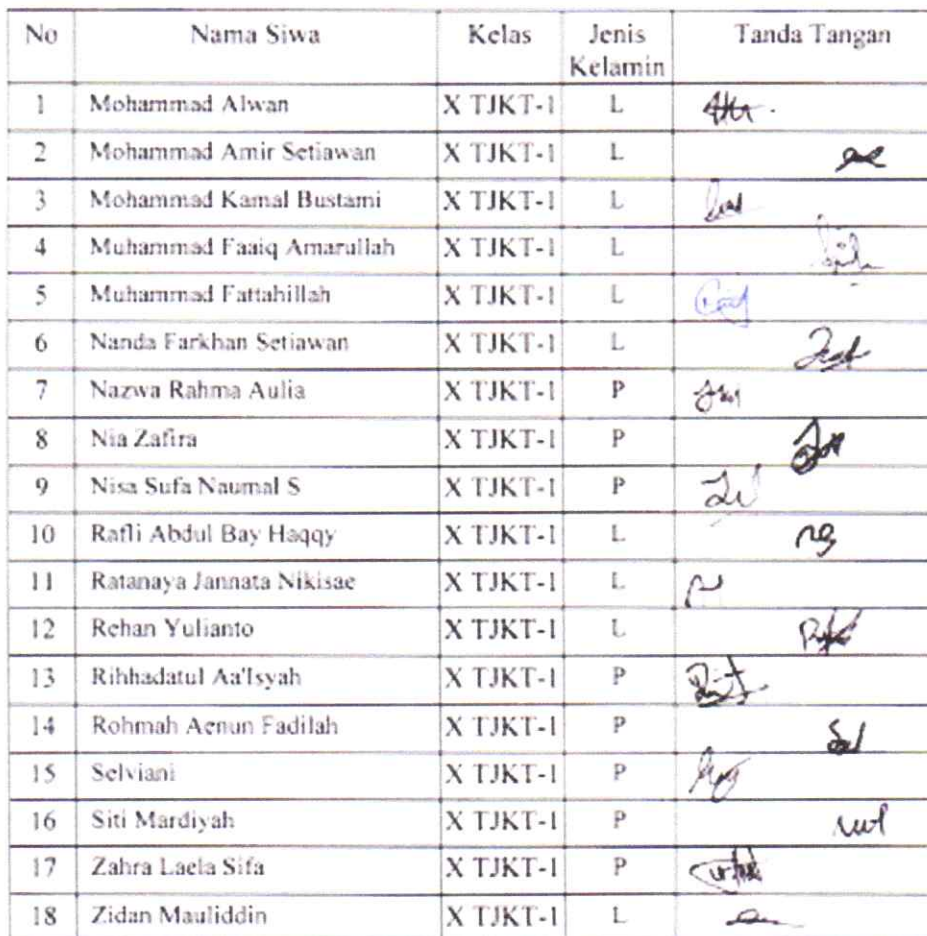 No Nama Siwa Kelas Jenis Kelamin Tanda Tangan
1 Mohammad Alwan X TJKT-1 L
2 Mohammad Amir Setiawan X TJKT-1 L
3 Mohammad Kamal Bustami X TJKT-1 L
4 Muhammad Faaiq Amarullah X TJKT-1 L
5 Muhammad Fattahillah X TJKT-1 L
6 Nanda Farkhan Setiawan X TJKT-1 L
7 Nazwa Rahma Aulia X TJKT-1 P
8 Nia Zafira X TJKT-1 P
9 Nisa Sufa Naumal S X TJKT-1 P
10 Rafli Abdul Bay Haqqy X TJKT-1 L
11 Ratanaya Jannata Nikisae X TJKT-1 L
12 Rehan Yulianto X TJKT-1 L
13 Rihhadatul Aa'Isyah X TJKT-1 P
14 Rohmah Aenun Fadilah X TJKT-1 P
15 Selviani X TJKT-1 P
16 Siti Mardiyah X TJKT-1 P
17 Zahra Laela Sifa X TJKT-1 P
18 Zidan Mauliddin X TJKT-1 L